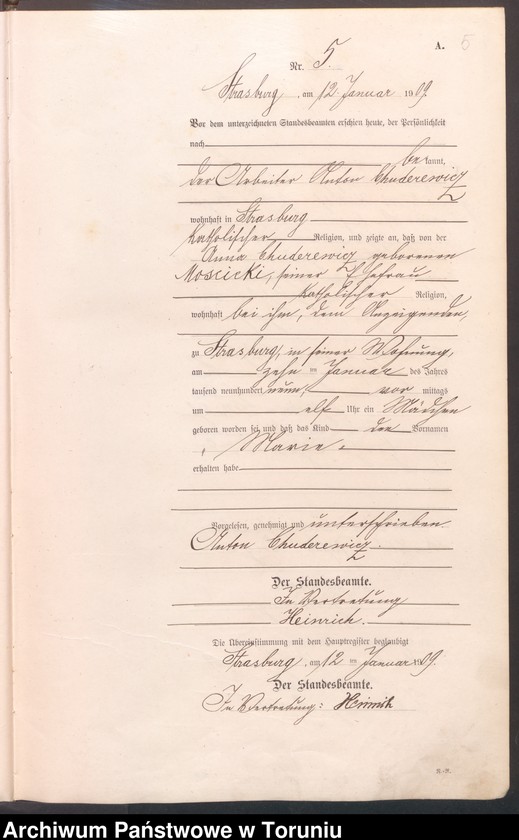 A. 5
Nr. 5.
Strasburg, am 12 Januar 1909.
Vor dem unterzeichneten Standesbeamten erschien heute, der Persönlichkeit
nach
bekannt,
der Arbeiter Anton Chuderewicz
wohnhaft in Strasburg
katholischer Religion, und zeigte an, daß von der
Anna Chuderewicz geborenen
Moscicki, seiner Ehefrau
katholischer Religion,
wohnhaft bei ihm, dem Anzeigenden,
zu Strasburg, in seiner Wohnung,
am zehn ten Januar des Jahres
tausend neunhundert neun, vor mittags
um elf Uhr ein Mädchen
geboren worden sei und daß das Kind den Vornamen
Marie
erhalten habe
Vorgelesen, genehmigt und unterschrieben.
Anton Chuderewicz.
Der Standesbeamte.
In Vertretung
Heinrich.
Die Übereinstimmung mit dem Hauptregister beglaubigt
Strasburg, am 12 ten Januar 1909.
Der Standesbeamte.
In Vertretung: Heinrich
Archiwum Państwowe w Toruniu